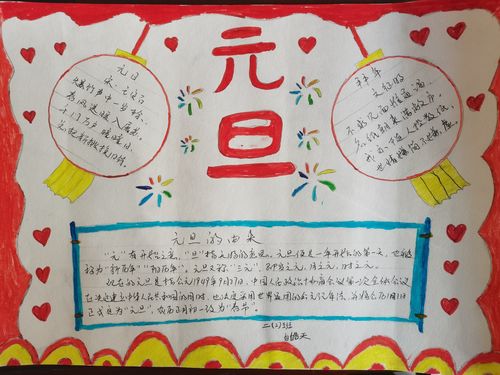 元旦
元日
宋·王安石
爆竹声中一岁除,
春风送暖入屠苏。
千门万户曈曈日,
总把新桃换旧符。
拜年
文征明
不求见面惟通谒,
名纸朝来满敝庐。
我亦随人投数纸,
世情嫌简不嫌虚。
元旦的由来
“元”有开始之意,“旦”指天明的意思。元旦便是一年开始的第一天,也被
称为“新历年”“阳历年”。元旦又称“三元”,即岁之元、月之元、时之元。
现在的元旦是指公元1949年9月27日,中国人民政治协商会议第一次全体会议
在决定建立中华人民共和国的同时,也决定采用世界通用的公元纪年法,并将公历1月1日
正式定为“元旦”,农历正月初一改为“春节”。
二(2)班